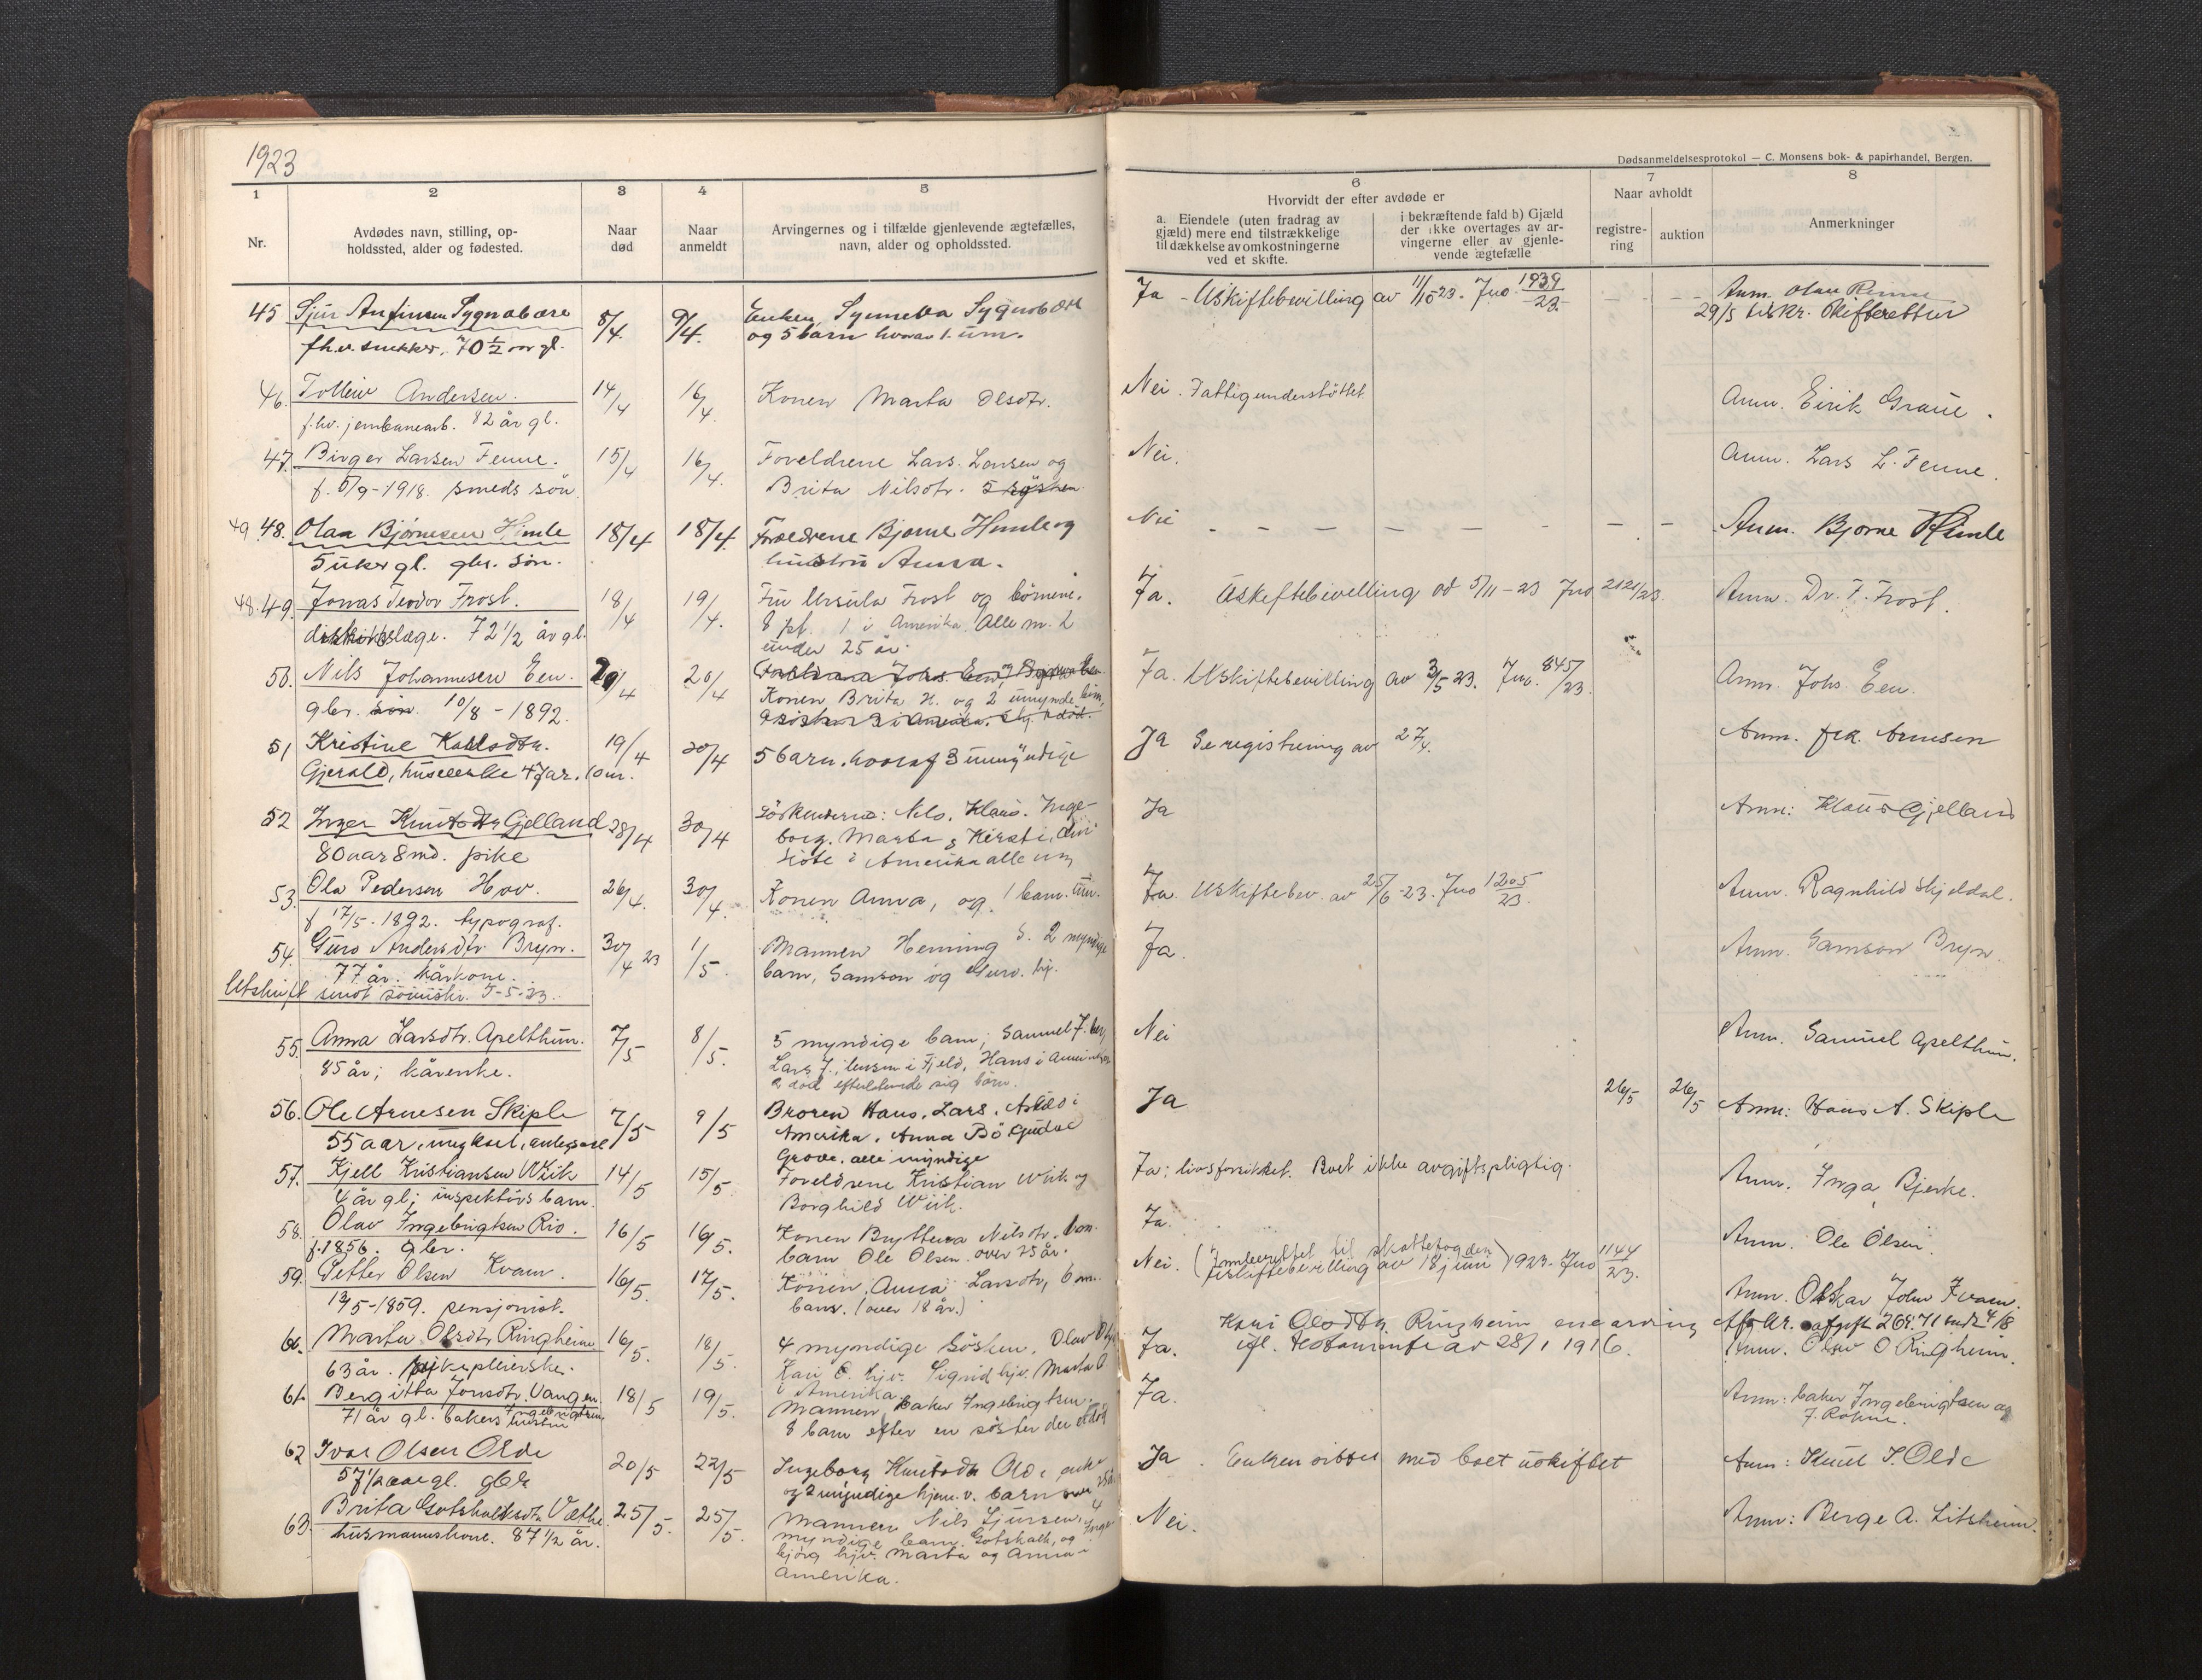 1923
Dødsanmeldelsesprotokol — C. Monsens bok- & papirhandel, Bergen.
1
2
3
4
5
6
7
8
Nr.
Avdødes navn, stilling, op-
holdssted, alder og fødested.
Naar
død
Naar
anmeldt
Arvingernes og i tilfælde gjenlevende ægtefælles,
navn, alder og opholdssted.
Hvorvidt der efter avdøde er
a. Eiendele (uten fradrag av
gjæld) mere end tilstrækkelige
til dækkelse av omkostningerne
ved et skifte.
i bekræftende fald b) Gjæld
der ikke overtages av ar-
vingerne eller av gjenle-
vende ægtefælle
Naar avholdt
registre-
ring
auktion
Anmerkninger
45 Sjur Anfinsen Sygnabære
fh.v. snekker. 70 1/2 aar gl.
8/4. 9/4.
Enken, Synneva Sygnabære
og 5 barn hvorav 1. um.
Ja - Uskiftebevilling av 11/10 23. Jno. 1939/23.
Anm. Olav Renne
29/5 Skifteretten
46. Andersen.
f.hv. jernbanearb. 82 år gl.
14/4 16/4.
Konen Marta Olsdtr.
Nei. Fattigunderstöttet
Anm. Eirik Graue.
47. Birger Larsen Fenne.
f. 5/9-1918. smeds sön
15/4 16/4.
Foreldrene Lars Larsen og
Brita Nilsdtr. 5 søsken
Nei.
Anm. Lars L. Fenne.
49 48. Olaa Bjørnesen Himle
5 uker gl. gbr. søn.
18/4 18/4.
Forældrene Bjørne Himle og
hustru Anna.
Nei – – – – – – –
Anm. Bjorne Himle
48. 49. Jonas Teodor Frost.
distriktslæge. 72 1/2 år gl.
18/4 19/4.
Fru Ursula Frost og börnene.
8 pt. 1 i Amerika. Alle m. 2
under 25 år.
Ja. Uskiftebevilling od 5/11-23 Jno 2121/23.
Anm. Dr. F. Frost.
50. Nils Johannesen Een.
gbr. søn. 10/8-1892.
20/4 20/4
Konen Brita H. og 2 umynd. børn,
Ja. Uskiftebevilling av 3/5 23. Jno. 845/23
Anm. Johs Een.
51 Kristine Karlsdtr.
Gjerald, husenke 47 ar. 10 m.
19/4 20/4
5 barn. hvoraf 3 umyndige
Ja Se registrering av 27/4.
Anm. frk. Arnesen
52 Inger Knutsdtr Gjelland
80 aar 8 md. pike
28/4 30/4
Söskenderne: Nils, Klaus. Inge-
borg. Marta, Kirsti, div
siste i Amerika alle myn
Ja
Anm: Klaus Gjelland
53. Ola Pedersen Hov.
f 17/5-1892. typograf.
26/4. 30/4.
Konen Anna, og 1 barn. um.
Ja. Uskiftebev. av 25/6-23. Jno 1205/23.
Anm. Ragnhild Skjeldal.
54. Guro Andersdtr. Bryn.
77 år. kårkone.
Utskrift sendt 7-5-23.
30/4 23 1/5.
Mannen Henning S. 2 myndige
barn, Samson og Guro. hj.
Ja.
Anm. Samson Bryn.
55. Anna Larsdtr. Apelthun.
85 år; kårenke.
7/5 8/5.
5 myndige barn; Samuel J.
Lars J., i Fjeld, Hans i Amerika,
2 død efterlatende sig børn.
Nei
Anm. Samuel Apelthun.
56. Ole Arnesen Skiple
55 aar, ungkarl,
7/5 9/5
Broren Hans. Lars, i
Amerika. Anna Bö Gudve
Grove. alle myndige
Ja 26/5 26/5
Anm: Hans A. Skiple
57. Kjell Kristiansen Wiik
4 år gl; inspektörs barn.
14/5 15/5.
Foreldrene Kristian Wiik og
Borghild Wiik.
Ja; livsforsikret. Boet ikke avgiftspligtig.
Anm. Inga Bjerke.
58. Olav Ingebrigtsen Rio.
f. 1856. gbr.
16/5 16/5.
Konen Brytteva Nilsdtr.
barn Ole Olsen. over 25 år.
Ja.
Anm. Ole Olsen.
59. Petter Olsen Kvam.
12/5-1859. pensjonist.
16/5. 17/5.
Konen Anna Larsdtr, 6 m.
barn. (over 18 år.)
Nei. til skattefogden
Uskiftebevilling av 18 juni 1923. Jno 1144/23.
Anm. Oskar John Kvam.
60. Marta Olsdtr Ringheim
63 år. sykepleierske.
16/5. 18/5.
4 myndige søsken, Olav
Kari O. hjv. Sigrid hjv. Marta O
i Amerika.
Ja. Kari Olsdtr. Ringheim enearving
ifl. testamente av 28/1 1916.
Anm. Olav O Ringheim.
61. Bergitta Jonsdtr. Vangen
Ingebrigtsen
71 år gl. bakers hustru
18/5 19/5.
Mannen baker Ingebrigtsen.
8 barn efter en søster der er död
Ja.
Anm: baker Ingebrigtsen og
J. Rokne.
62 Ivar Olsen Olde
57 1/2 aar gl. gbr
20/5 22/5
Ingeborg Knutsdtr Olde enke
og 2 myndige hjem. v. barn over 25 år
Ja. Enken sitter med boet uskiftet
Anm: Knut I. Olde
63. Brita Gotskalksdtr Væthe
husmannskone. 87 1/2 år.
25/5. 25/5.
Mannen Nils Sjursen, 4
myndige barn. Gotskalk, og Inge-
björg hjv. Marta og Anna i
Amerika.
Nei.
Anm: Berge A. Litsheim.